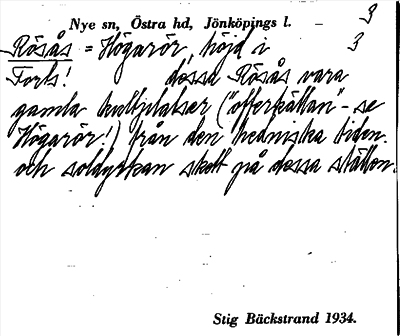 Nye sn, Östra hd, Jönköpings l. – 3
Rösås = Högarör, höjd i 3
Forts! dessa Rösås vara
gamla kultplatser ("offerkällan" - se
Högarör!) från den hedniska tiden.
och soldyrkan skett på dessa ställen.
Stig Bäckstrand 1934.